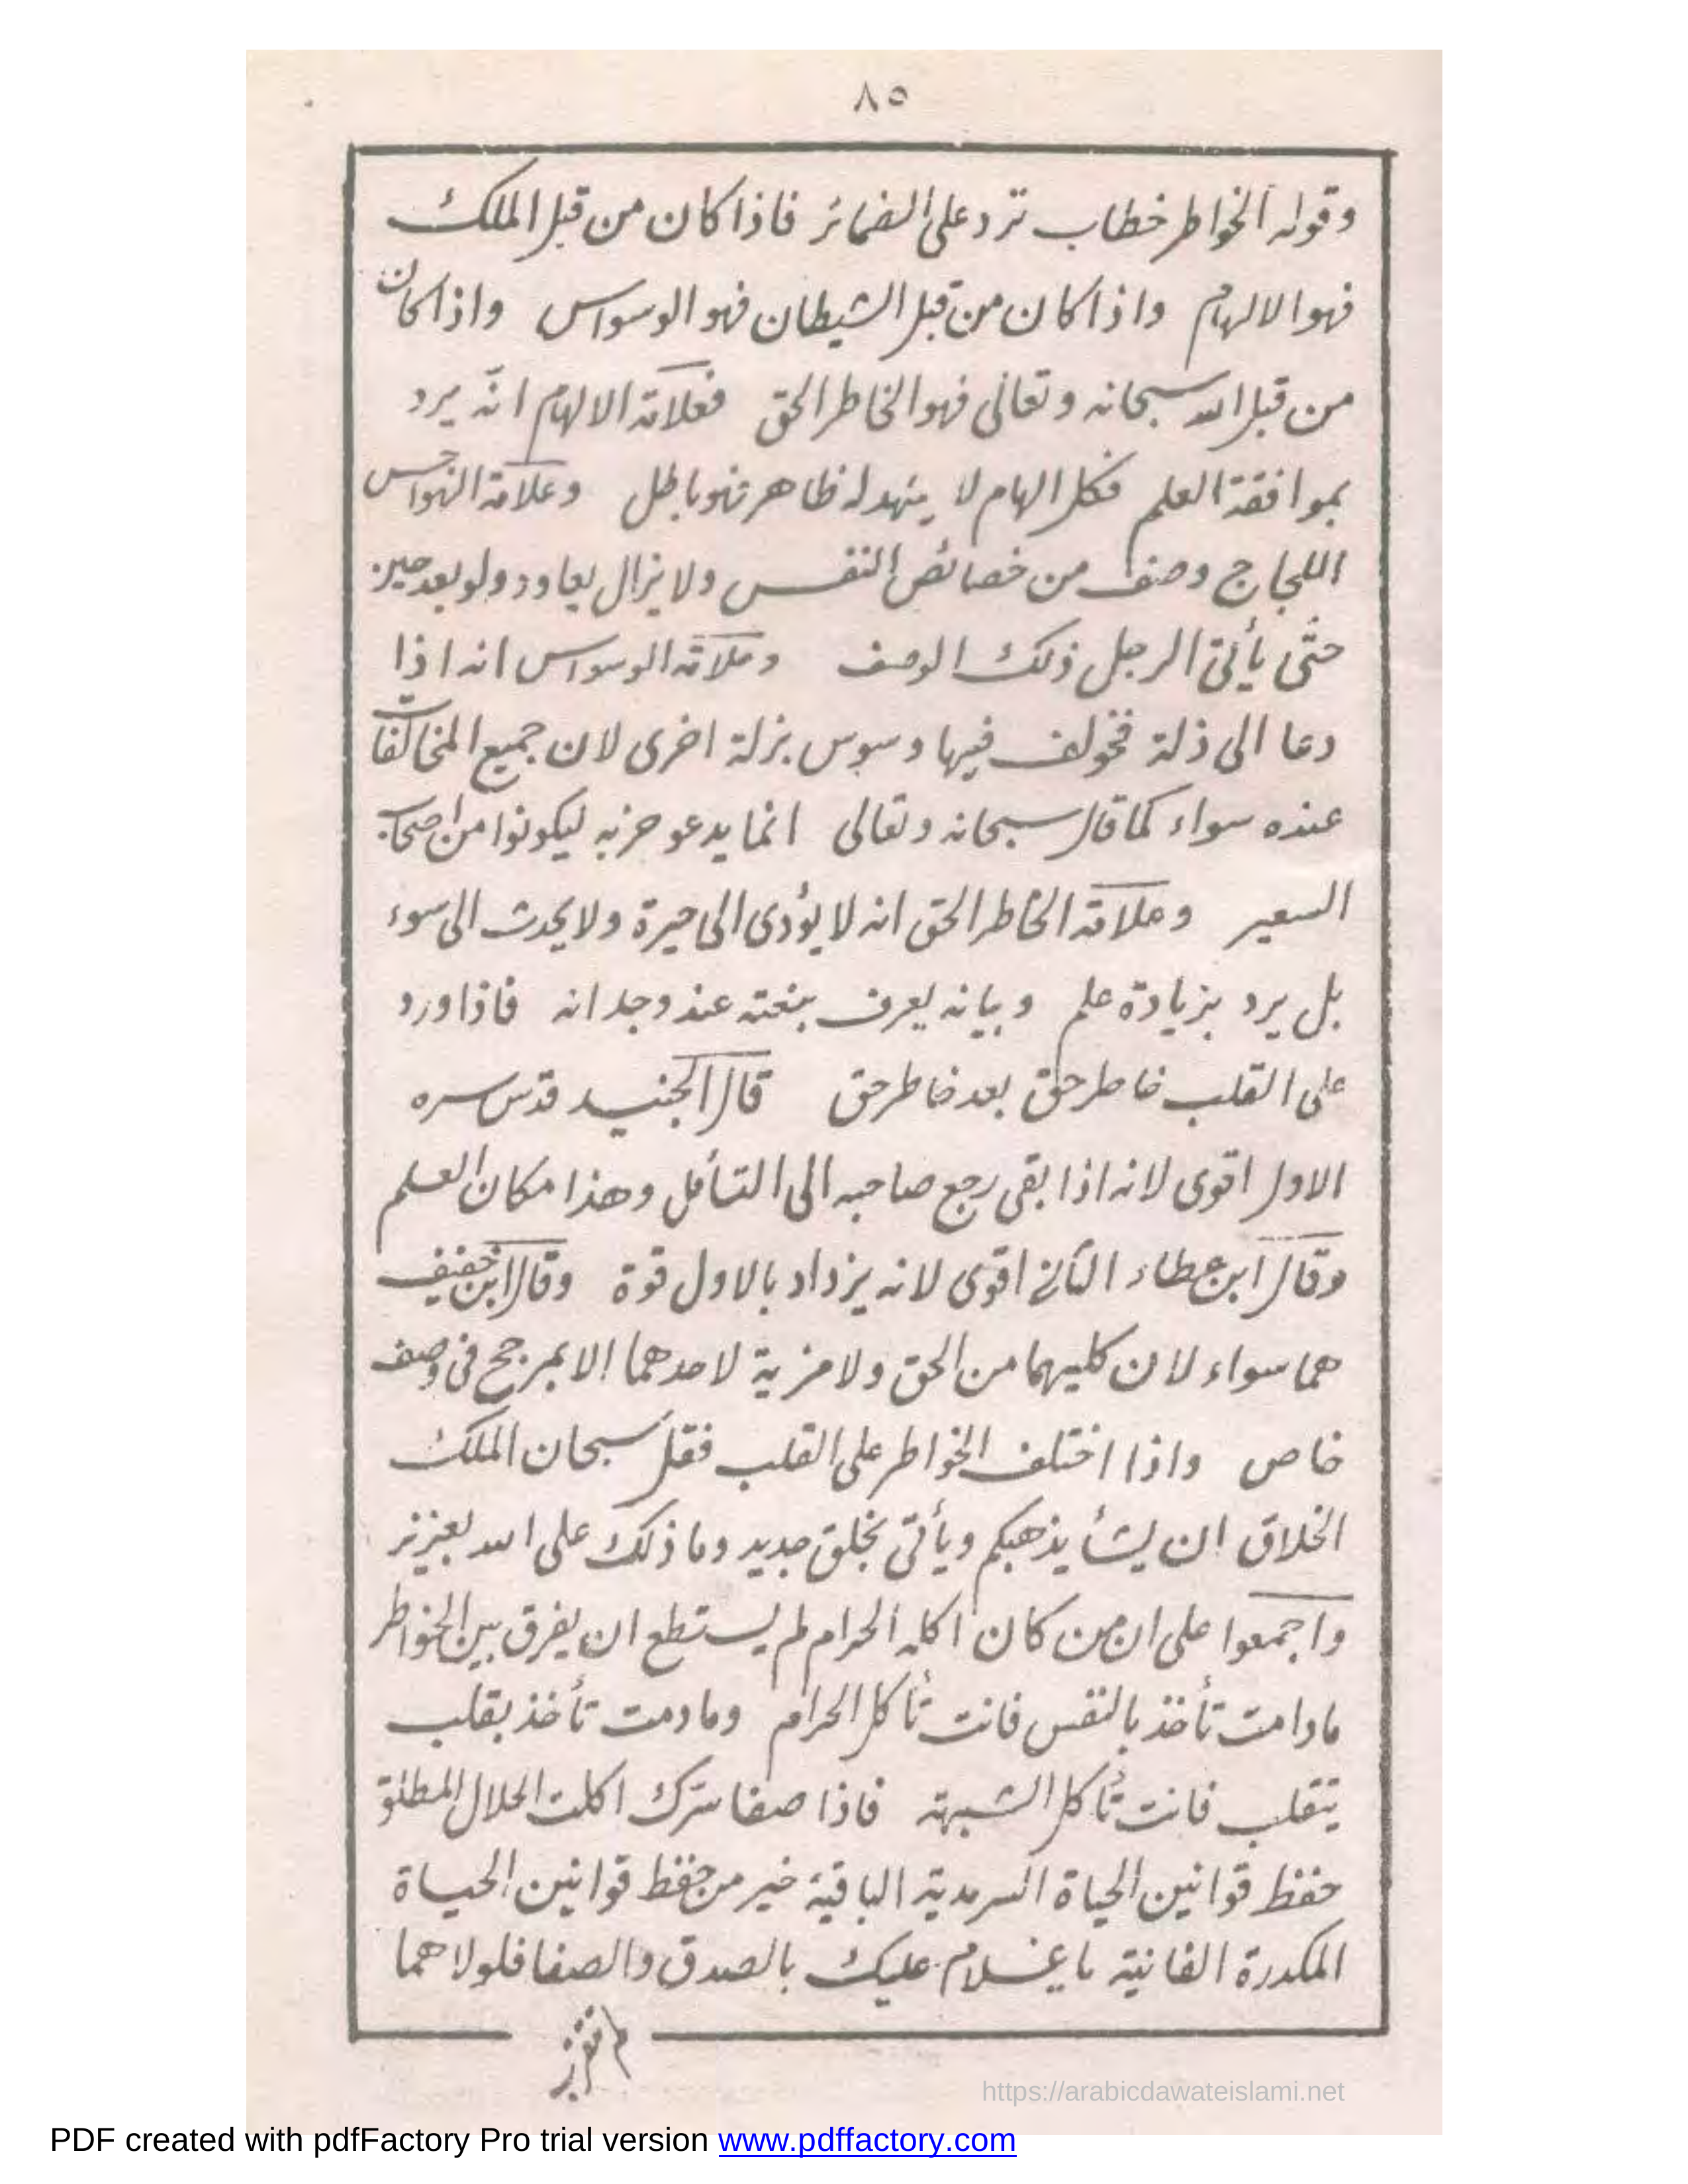 ٨٥
وقوله الخواطر خطاب ترد على الضمائر فاذا كان من قبل الملك
فهو الالهام واذا كان من قبل الشيطان فهو الوسواس واذا كان
من قبل الله سبحانه وتعالى فهو الخاطر الحق فعلامة الالهام انه يرد
بموافقة العلم فكل الهام لا يشهد له ظاهر فهو باطل وعلامة الهواجس
اللجاج وصف من خصائص النفس ولا يزال يعاود ولو بعد حين
حتى يأتى الرجل ذلك الوصف وعلامة الوسواس انه اذا
دعا الى ذلة فخولف فيها وسوس بزلة اخرى لان جميع المخالفات
عنده سواء كما قال سبحانه وتعالى انما يدعو حزبه ليكونوا من اصحاب
السعير وعلامة الخاطر الحق انه لا يؤدى الى حيرة ولا يحدث الى سوء
بل يرد بزيادة علم وبيانه يعرف بنعته عند وجدانه فاذا ورد
على القلب خاطر حق بعد خاطر حق قال الجنيد قدس سره
الاول اقوى لانه اذا بقى رجع صاحبه الى التأمل وهذا مكان العلم
وقال ابن عطاء الثانى اقوى لانه يزداد بالاول قوة وقال ابن خفيف
هما سواء لان كليهما من الحق ولا مزية لاحدهما الا بمرجح فى وصف
خاص واذا اختلف الخواطر على القلب فقل سبحان الملك
الخلاق ان يشأ يذهبكم ويأتى بخلق جديد وما ذلك على الله بعزيز
واجمعوا على ان من كان اكله الحرام لم يستطع ان يفرق بين الخواطر
مادامت تأخذ بالنفس فانت تأكل الحرام ومادمت تأخذ بقلب
يتقلب فانت تأكل الشبهة فاذا صفا سرك اكلت الحلال المطلق
حفظ قوانين الحياة السرمدية الباقية خير من حفظ قوانين الحياة
المكدرة الفانية ياغلام عليك بالصدق والصفا فلولا هما
https://arabicdawateislami.net
PDF created with pdfFactory Pro trial version www.pdffactory.com